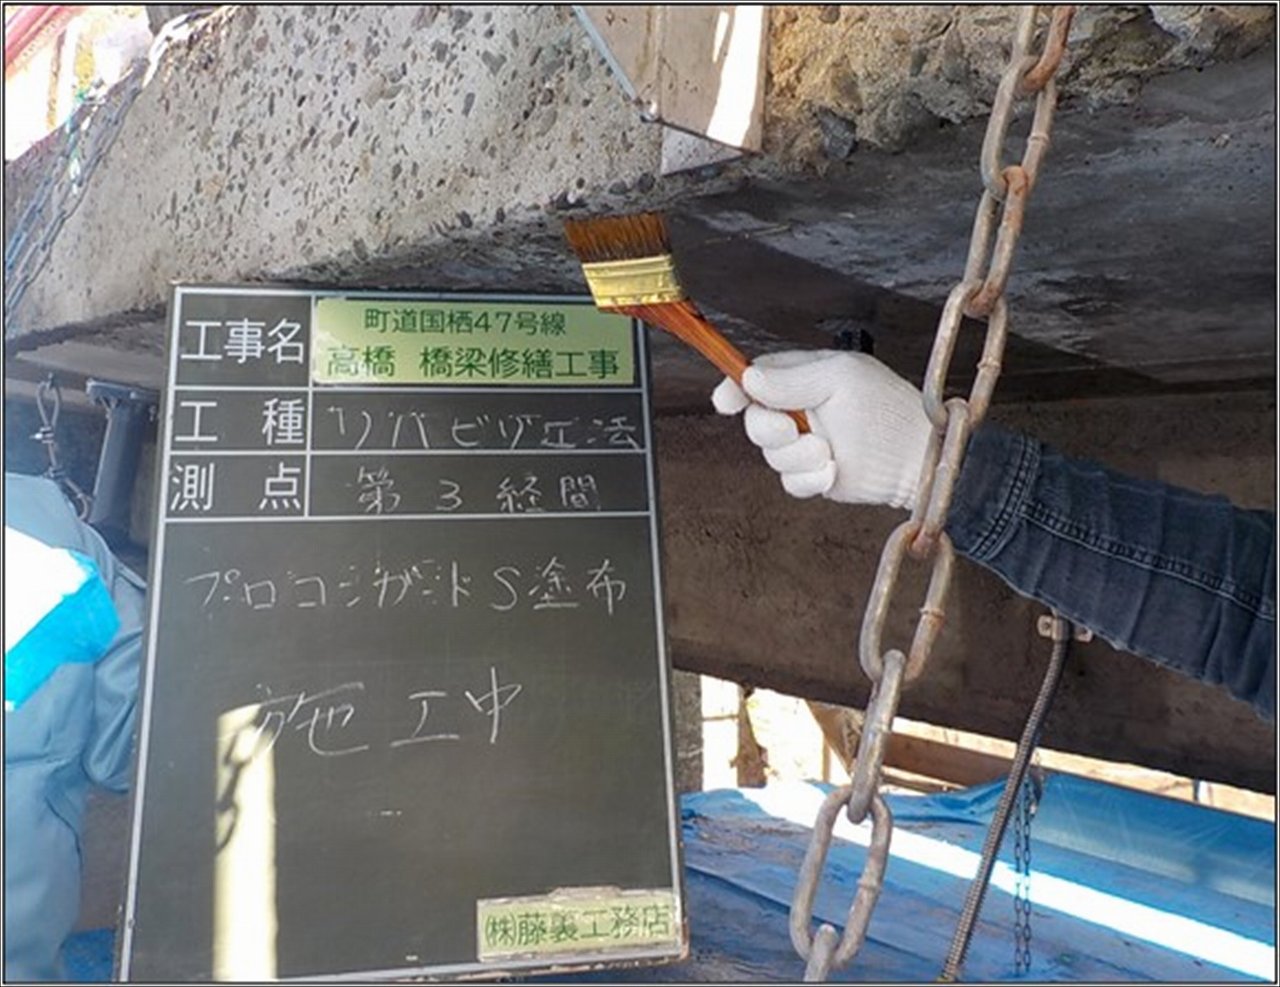 工事名 町道国栖47号線
高橋 橋梁修繕工事
工種 リハビリ工法
測点 第3経間
プロコンガードS塗布
施工中
㈱藤裏工務店